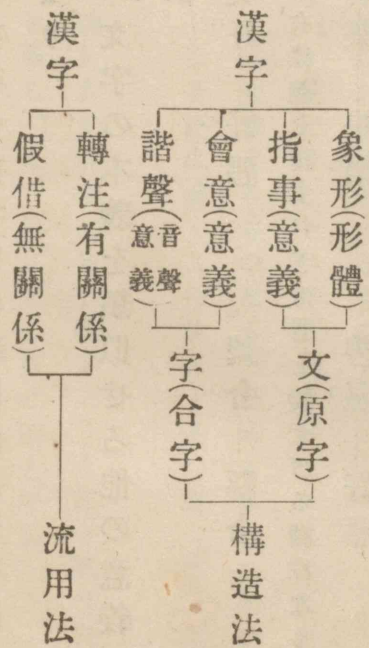 漢字
象形(形體)
指事(意義)
會意(意義)
諧聲(音聲意義)
文(原字)
字(合字)
構造法
漢字
轉注(有關係)
假借(無關係)
流用法